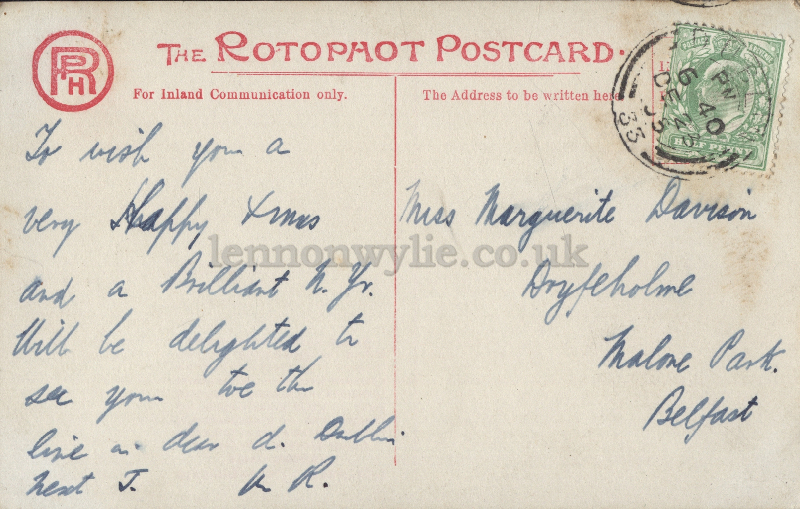 RPPH
THE ROTOPHOT POSTCARD.
For Inland Communication only.
The Address to be written here
To wish you a
very Happy Xmas
and a Brilliant N. Yr.
Will be delighted to
see you the
line in dear d. Dublin
next J. R.
Miss Marguerite Davison
Dryfeholme
Malone Park.
Belfast
6 40 PM
DE 23
33
HALF PENNY
lennonwylie.co.uk